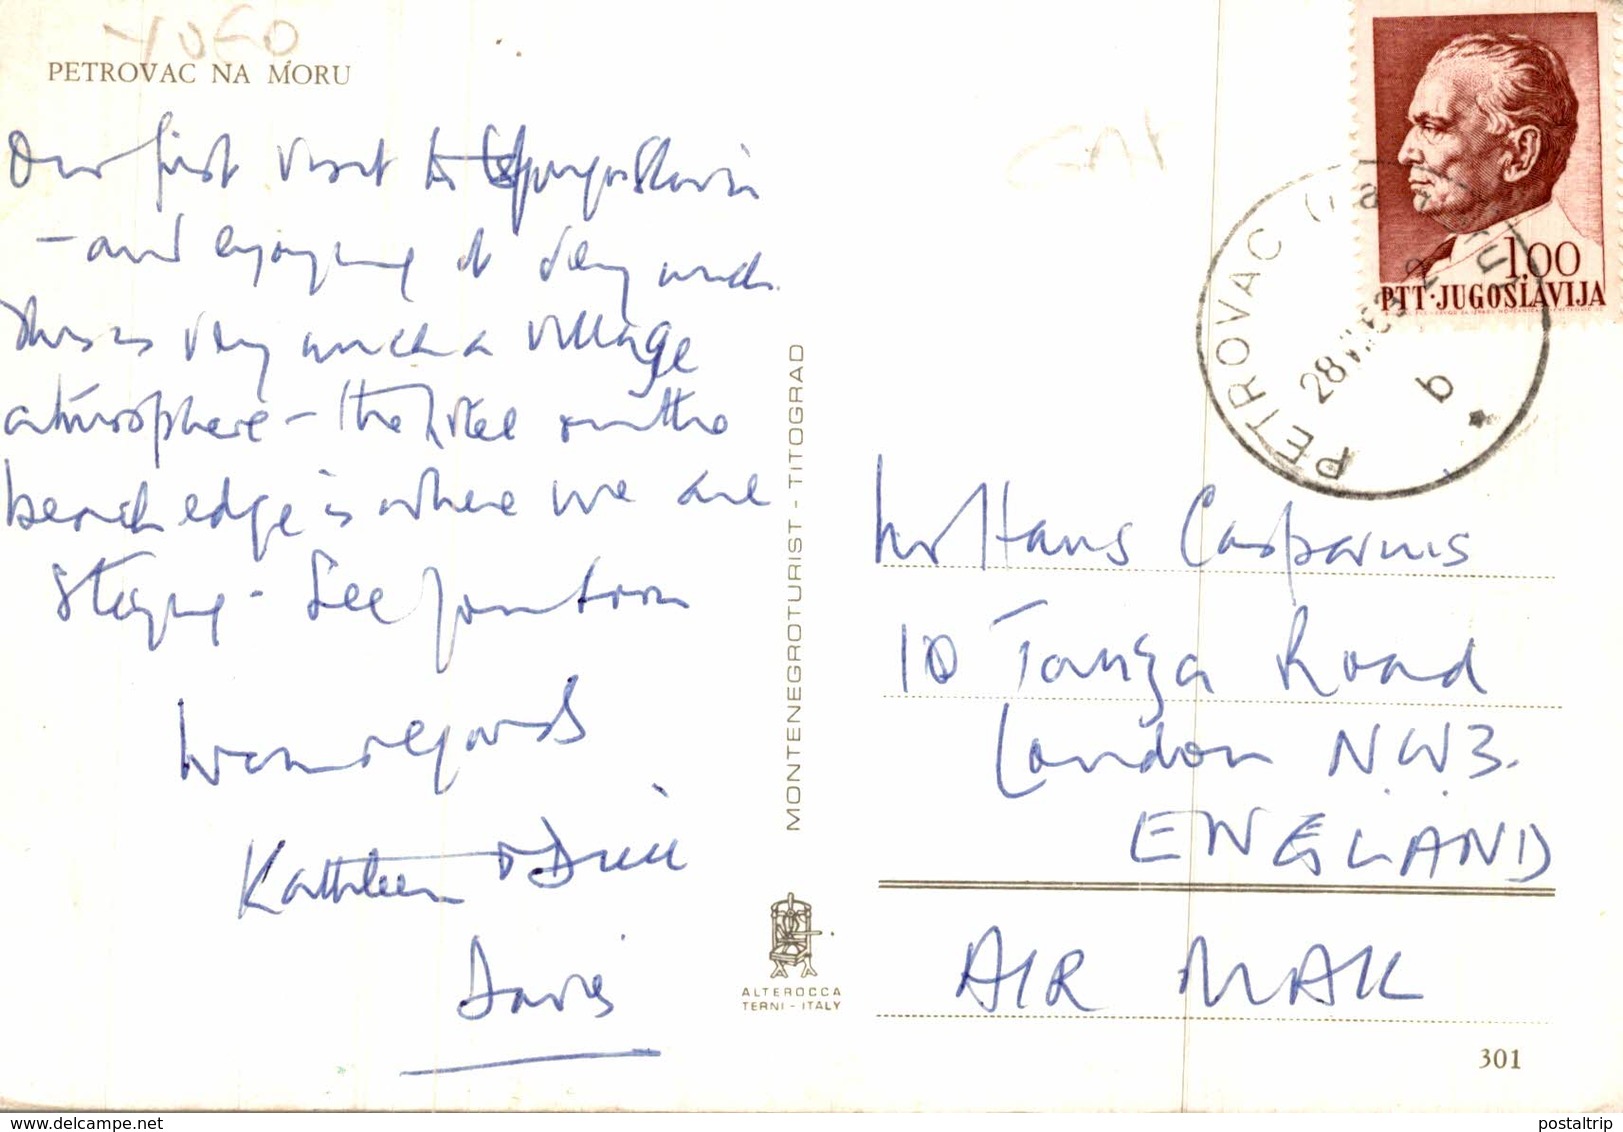 YUGO
PETROVAC NA MORU
Our first visit to Yugoslavia
- and enjoying it very much.
This is very much a village
atmosphere - the hotel on the
beach edge is where we are
staying - See you soon
Warm regards
Kathleen &
Davis
MONTENEGROTURIST - TITOGRAD
ALTEROCCA
TERNI - ITALY
1.00
PTT·JUGOSLAVIJA
PETROVAC
28.VI
b
Mr Hans Casparius
10 Tanza Road
London N.W.3.
ENGLAND
AIR MAIL
301
www.delcampe.net
postaltrip